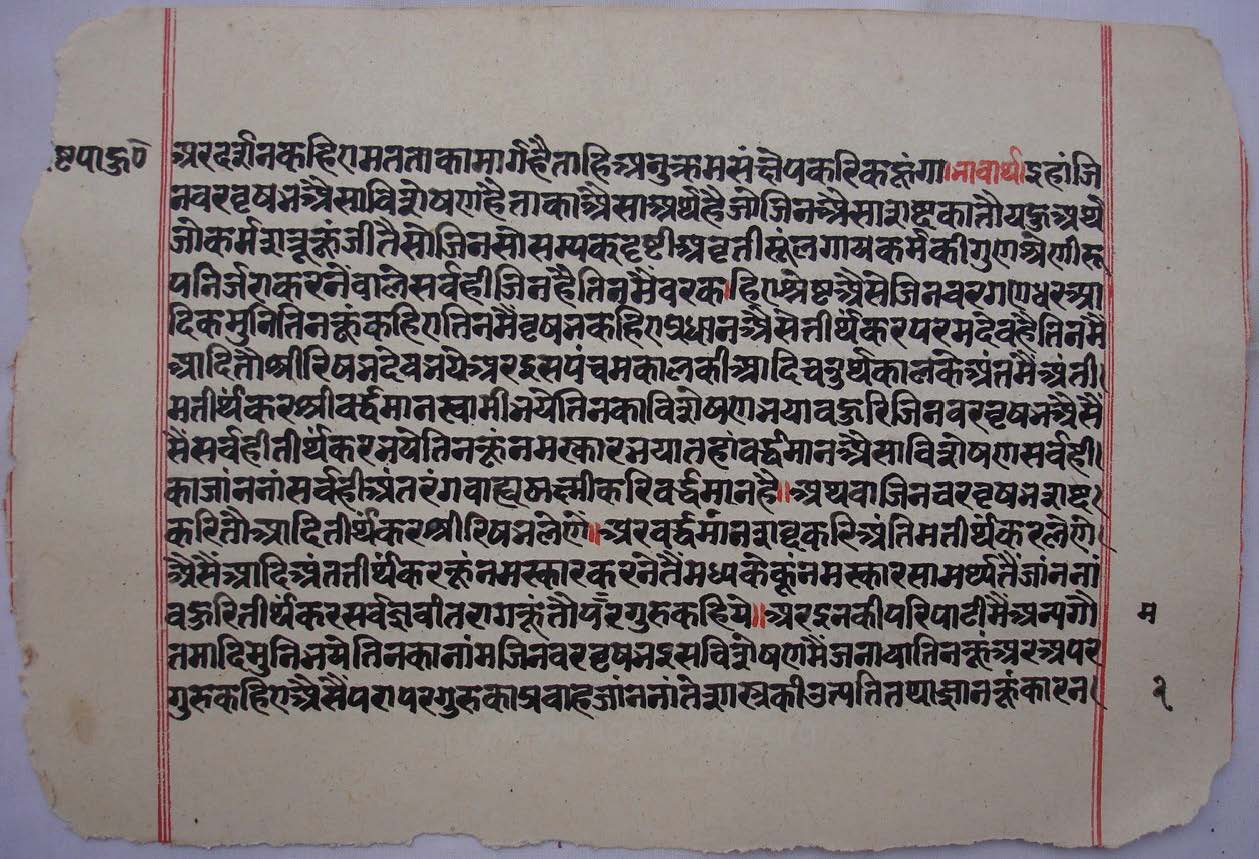 ष्टपाहुड
अर दर्शन कहिए मत ताका मार्ग है ताहि अनुक्रम संक्षेपकरि कहूंगा। भावार्थ। इहां जि
नवरवृषभ अैसा विशेषण है ताका अैसा अर्थ है जो जिन अैसा शब्दका तौ यहु अर्थ
जो कर्मशत्रूकूं जीतै सो जिन सो सम्यकदृष्टी अवृतीसूं लगाय कर्मकी गुणश्रेणीरू
प निर्जरा करनेवाले सर्वही जिन हैं तिनमैं वर कहिए श्रेष्ट अैसे जिनवर गणधर आ
दिक मुनि तिनकूं कहिए तिनमैं वृषभ कहिए प्रधान अैसे तीर्थंकर परमदेव है तिनमैं
आदि तौ श्रीरिषभदेव भये अर इस पंचमकालकी आदि चतुर्थकालके अंतमैं अंती।
म तीर्थंकर श्रीवर्द्धमानस्वामी भये तिनका विशेषण भया वहुरि जिनवरवृषभ अैसैं
सैं सर्वही तीर्थंकर भये तिनकूं नमस्कार भया तहां वर्द्धमान अैसा विशेषण सर्वही।
का जांननां सर्वही अंतरंग वाह्य लक्ष्मीकरि वर्द्धमान है॥ अथवा जिनवरवृषभ शब्द।
करि तौ आदितीर्थंकर श्रीरिषभ लेणे॥ अर वर्द्धमांन शब्दकरि अंतिम तीर्थंकर लेणे।
अैसैं आदि अंत तीर्थंकरकूं नमस्कार करनेतैं मध्यकेकूं नमस्कार सामर्थ्यतैं जांननां
वहुरि तीर्थंकर सर्वज्ञ वीतरागकूं तौ परगुरु कहिये॥ अर इनकी परिपाटीमैं अन्य गौ
म
तमादि मुनि भये तिनका नांम जिनवरवृषभ इस विशेषणमैं जनाया तिनकूं अर अपर
गुरु कहिए अैसैं परापरगुरुका प्रवाह जांननां ते शास्त्रकी उत्पति तथा ज्ञानकूं कारन।
२